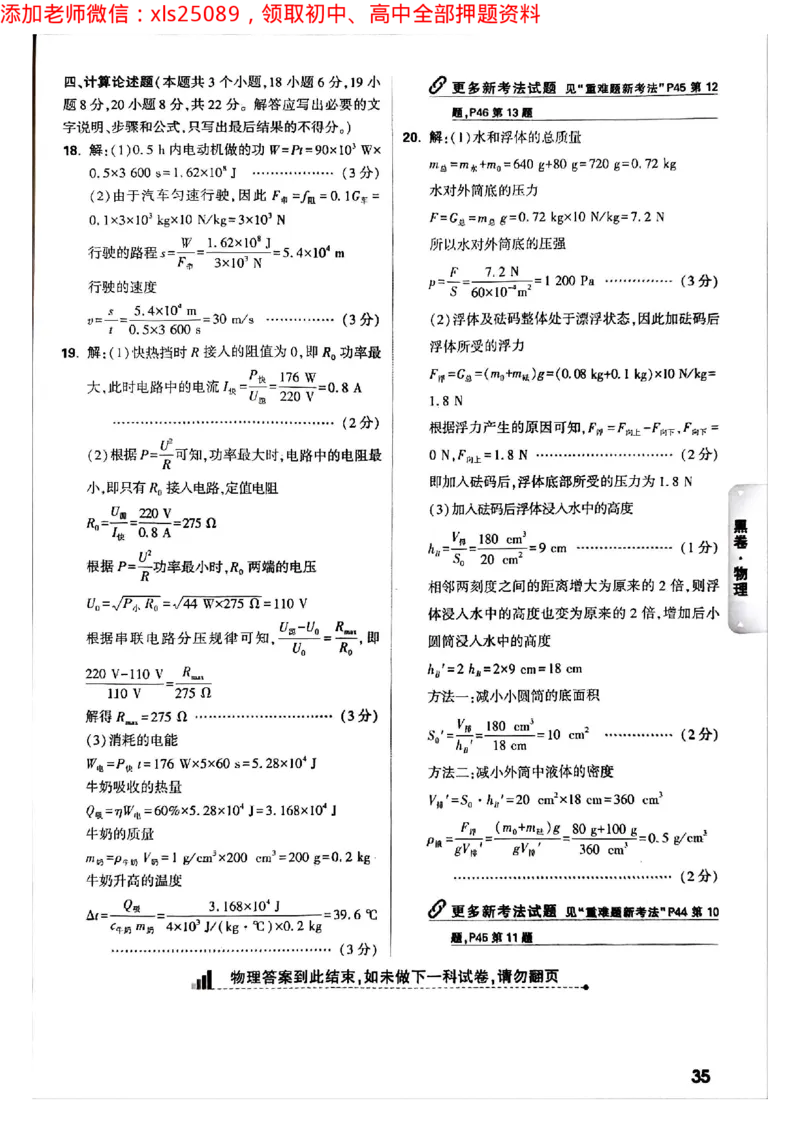 添加老师微信：xls25089，领取初中、高中全部押题资料
四、计算论述题(本题共 3 个小题,18 小题 6 分,19 小
题 8 分,20 小题 8 分,共 22 分。解答应写出必要的文
字说明、步骤和公式,只写出最后结果的不得分。)
18. 解:(1)0.5 h 内电动机做的功 W=Pt=90×10³ W×
0.5×3 600 s=1.62×10⁸ J ……………… (3 分)
(2)由于汽车匀速行驶,因此 F牵=f阻=0.1G车=
0.1×3×10³ kg×10 N/kg=3×10³ N
行驶的路程 s=W/F牵=1.62×10⁸ J/3×10³ N=5.4×10⁴ m
行驶的速度
v=s/t=5.4×10⁴ m/0.5×3 600 s=30 m/s ………… (3 分)
19. 解:(1)快热挡时 R 接入的阻值为 0,即 R₀ 功率最
大,此时电路中的电流 I快=P快/U源=176 W/220 V=0.8 A
……………………………………… (2 分)
(2)根据 P=U²/R 可知,功率最大时,电路中的电阻最
小,即只有 R₀ 接入电路,定值电阻
R₀=U源/I快=220 V/0.8 A=275 Ω
根据 P=U²/R 功率最小时,R₀ 两端的电压
U₀=√(P小 R₀)=√(44 W×275 Ω)=110 V
根据串联电路分压规律可知,(U源-U₀)/U₀=Rmax/R₀,即
(220 V-110 V)/110 V=Rmax/275 Ω
解得 Rmax=275 Ω ………………………… (3 分)
(3)消耗的电能
W电=P快 t=176 W×5×60 s=5.28×10⁴ J
牛奶吸收的热量
Q吸=ηW电=60%×5.28×10⁴ J=3.168×10⁴ J
牛奶的质量
m奶=ρ牛奶 V奶=1 g/cm³×200 cm³=200 g=0.2 kg
牛奶升高的温度
Δt=Q吸/c牛奶 m奶=3.168×10⁴ J/4×10³ J/(kg·℃)×0.2 kg=39.6 ℃
……………………………………… (3 分)
更多新考法试题 见“重难题新考法”P45 第 12
题,P46 第 13 题
20. 解:(1)水和浮体的总质量
m总=m水+m₀=640 g+80 g=720 g=0.72 kg
水对外筒底的压力
F=G总=m总 g=0.72 kg×10 N/kg=7.2 N
所以水对外筒底的压强
p=F/S=7.2 N/60×10⁻⁴ m²=1 200 Pa …………… (3 分)
(2)浮体及砝码整体处于漂浮状态,因此加砝码后
浮体所受的浮力
F浮=G总=(m₀+m砝)g=(0.08 kg+0.1 kg)×10 N/kg=
1.8 N
根据浮力产生的原因可知,F浮=F向上-F向下,F向下=
0 N,F向上=1.8 N ………………………… (2 分)
即加入砝码后,浮体底部所受的压力为 1.8 N
(3)加入砝码后浮体浸入水中的高度
h浸=V排/S₀=180 cm³/20 cm²=9 cm ………………… (1 分)
相邻两刻度之间的距离增大为原来的 2 倍,则浮
体浸入水中的高度也变为原来的 2 倍,增加后小
圆筒浸入水中的高度
h浸′=2 h浸=2×9 cm=18 cm
方法一:减小小圆筒的底面积
S₀′=V排/h浸′=180 cm³/18 cm=10 cm² …………… (2 分)
方法二:减小外筒中液体的密度
V排′=S₀·h浸′=20 cm²×18 cm=360 cm³
ρ液=F浮/gV排′=(m₀+m砝)g/gV排′=80 g+100 g/360 cm³=0.5 g/cm³
……………………………………… (2 分)
更多新考法试题 见“重难题新考法”P44 第 10
题,P45 第 11 题
黑卷·物理
物理答案到此结束,如未做下一科试卷,请勿翻页
35